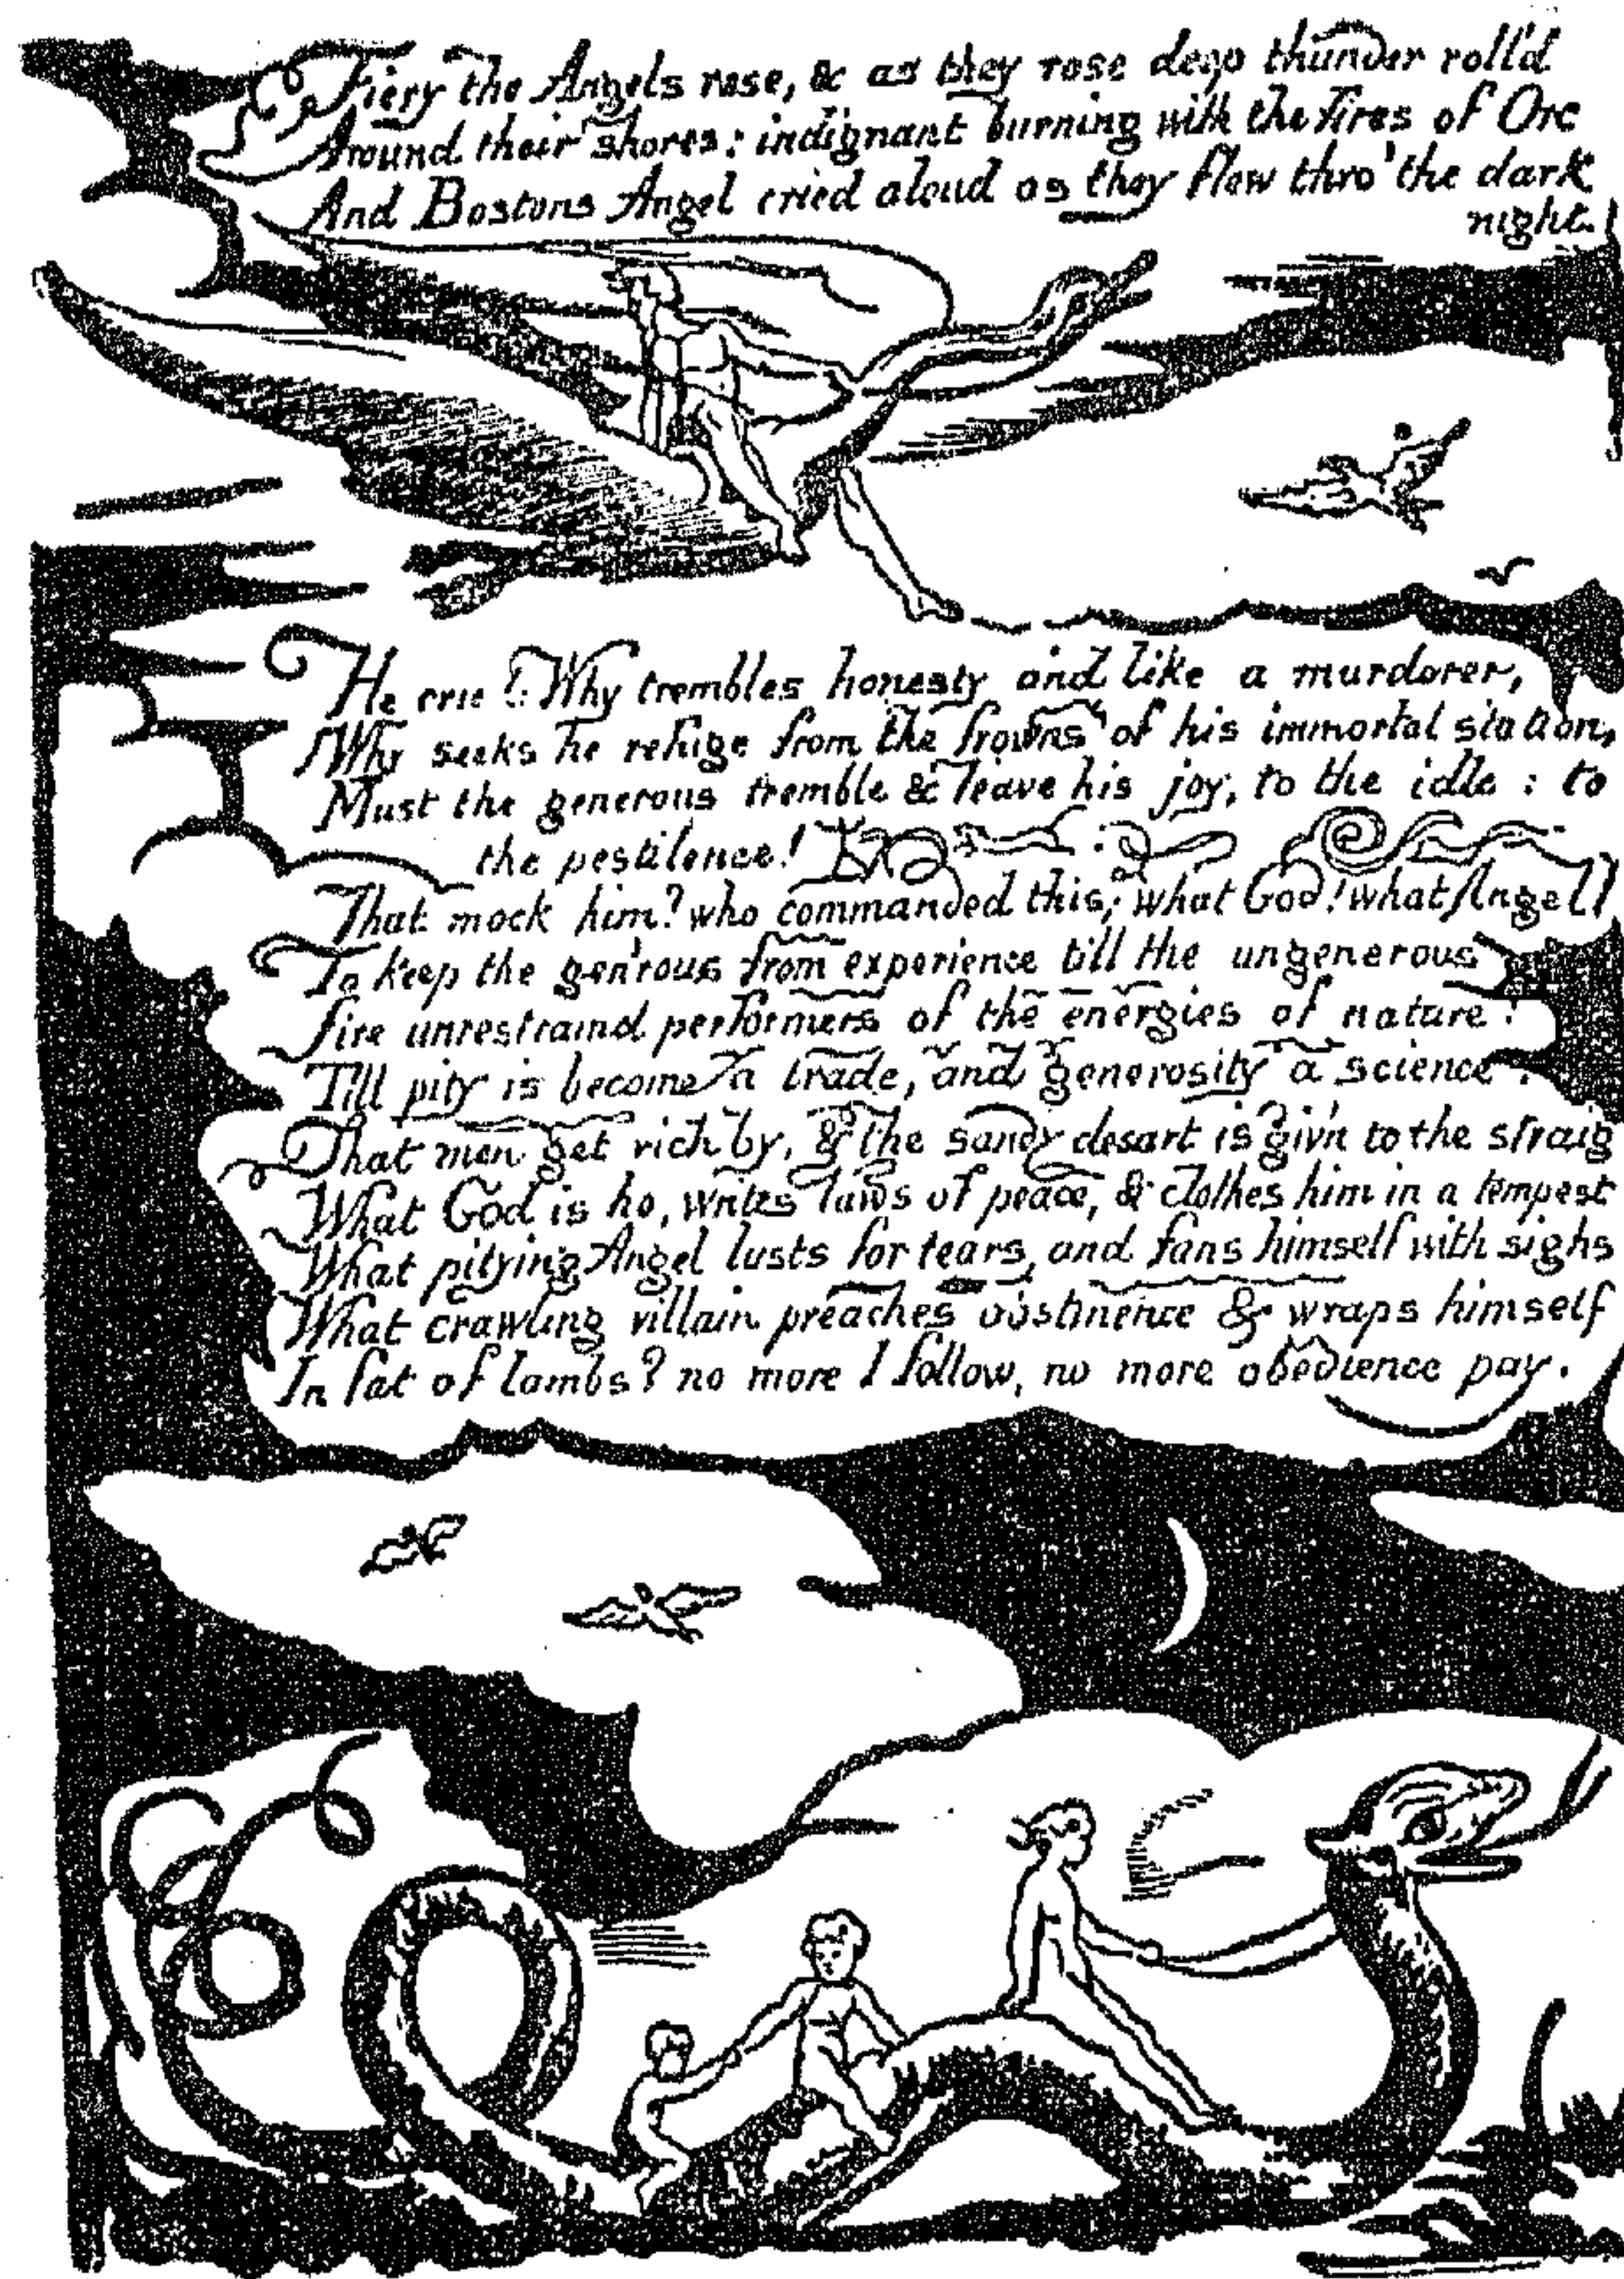 Fiery the Angels rose, & as they rose deep thunder roll'd
Around their shores: indignant burning with the fires of Orc
And Bostons Angel cried aloud as they flew thro' the dark
night.
He cried: Why trembles honesty and like a murderer,
Why seeks he refuge from the frowns of his immortal station,
Must the generous tremble & leave his joy, to the idle: to
the pestilence!
That mock him? who commanded this; what God! what Angel!
To keep the gen'rous from experience till the ungenerous
Are unrestraind performers of the energies of nature:
Till pity is become a trade, and generosity a science.
That men get rich by, & the sandy desart is giv'n to the strong
What God is he, writes laws of peace, & clothes him in a tempest
What pitying Angel lusts for tears, and fans himself with sighs
What crawling villain preaches abstinence & wraps himself
In fat of lambs? no more I follow, no more obedience pay.